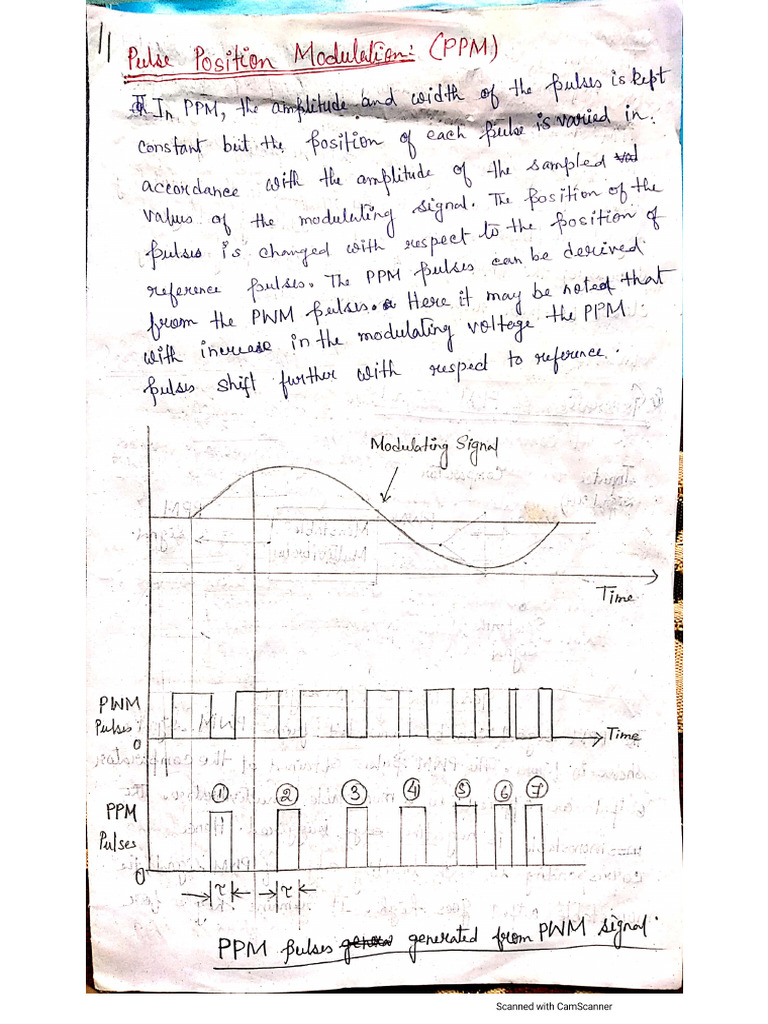 11
Pulse Position Modulation: (PPM)
In PPM, the amplitude and width of the pulses is kept
constant but the position of each pulse is varied in
accordance with the amplitude of the sampled
values of the modulating signal. The position of the
pulses is changed with respect to the position of
reference pulses. The PPM pulses can be derived
from the PWM pulses. Here it may be noted that
with increase in the modulating voltage the PPM
pulses shift further with respect to reference.
Modulating Signal
Time
PWM
Pulses
0
Time
1 2 3 4 5 6 7
PPM
Pulses
0
τ τ
PPM pulses generated from PWM signal.
Scanned with CamScanner